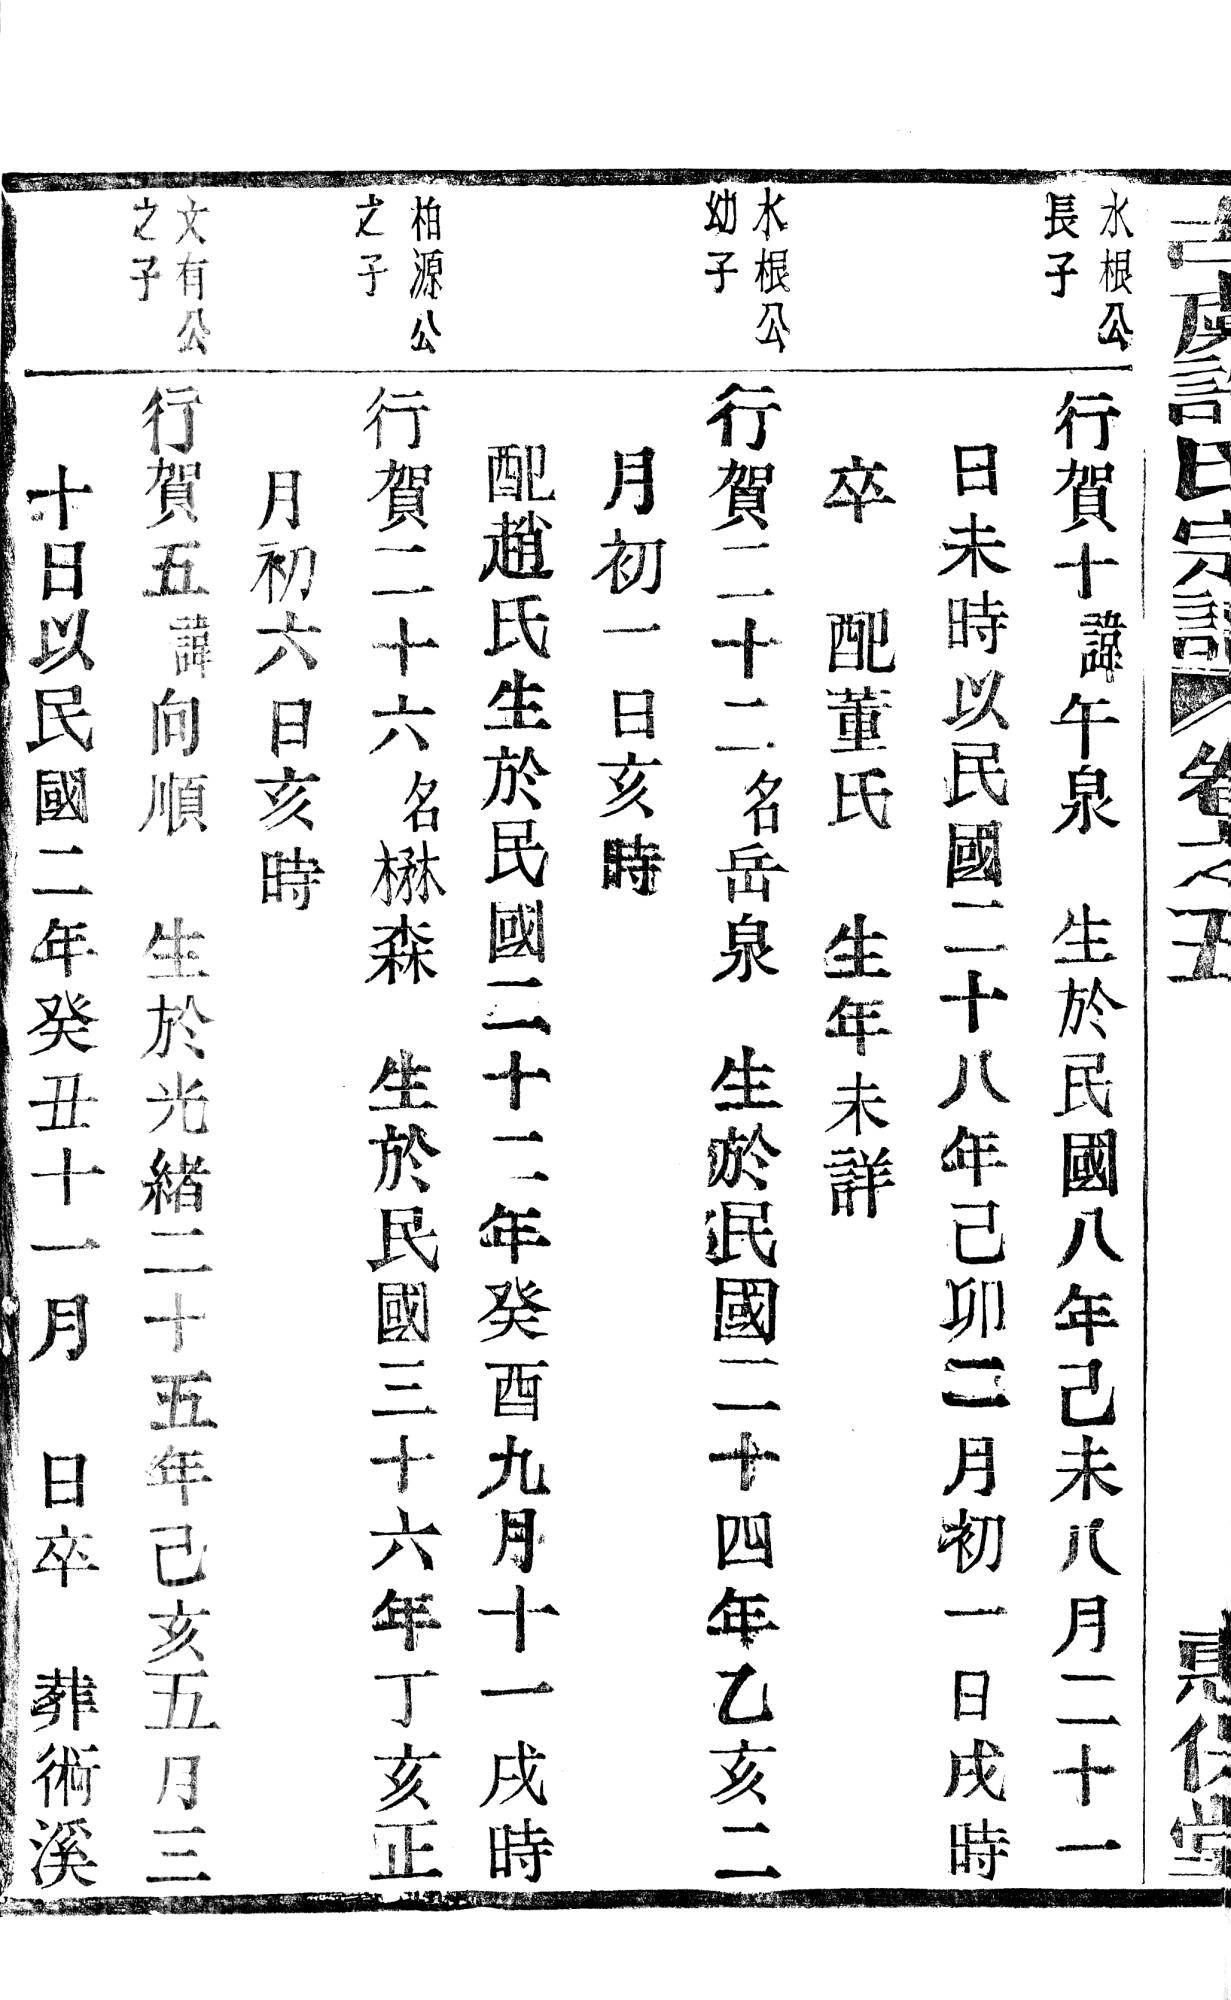 虞許氏宗譜 卷之五
水根公
長子
行賀十諱午泉 生於民國八年己未八月二十一
日未時以民國二十八年己卯二月初一日戌時
卒 配董氏 生年未詳
水根公
幼子
行賀二十二名岳泉 生於民國二十四年乙亥二
月初一日亥時
配趙氏生於民國二十二年癸酉九月十一戌時
柏源公
之子
行賀二十六名楙森 生於民國三十六年丁亥正
月初六日亥時
文有公
之子
行賀五諱向順 生於光緒二十五年己亥五月三
十日以民國二年癸丑十一月 日卒 葬術溪